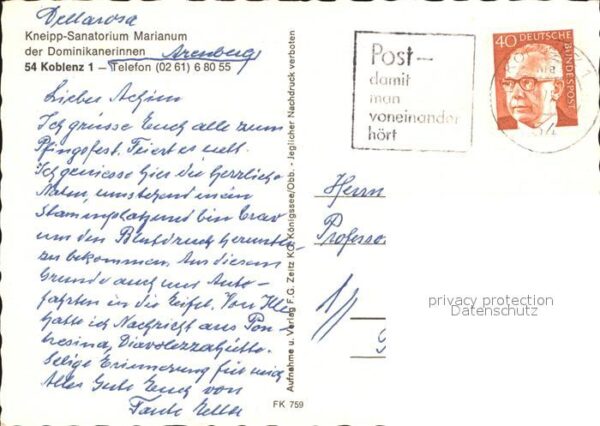 Kneipp-Sanatorium Marianum
der Dominikanerinnen Arenberg
54 Koblenz 1 – Telefon (02 61) 6 80 55
Lieber Achim
Ich grüsse Euch alle zum
Pfingstfest. Feiert es nett.
Ich geniesse hier die herrliche
Natur, umstehend mein
Stammplatz und bin brav
um den Blutdruck herunter
zu bekommen. Aus diesem
Grunde auch nur Auto-
fahrten in die Eifel. Von
hatte ich Nachricht aus Pon-
tresina, Diavolezzahütte.
Selige Erinnerung für mich
Alles Gute Euch von
Tante
Aufnahme u. Verlag F.G. Zeitz KG. Königssee/Obb. - Jeglicher Nachdruck verboten
FK 759
Post –
damit
man
voneinander
hört
40 DEUTSCHE
BUNDESPOST
Herrn
Professor
privacy protection
Datenschutz